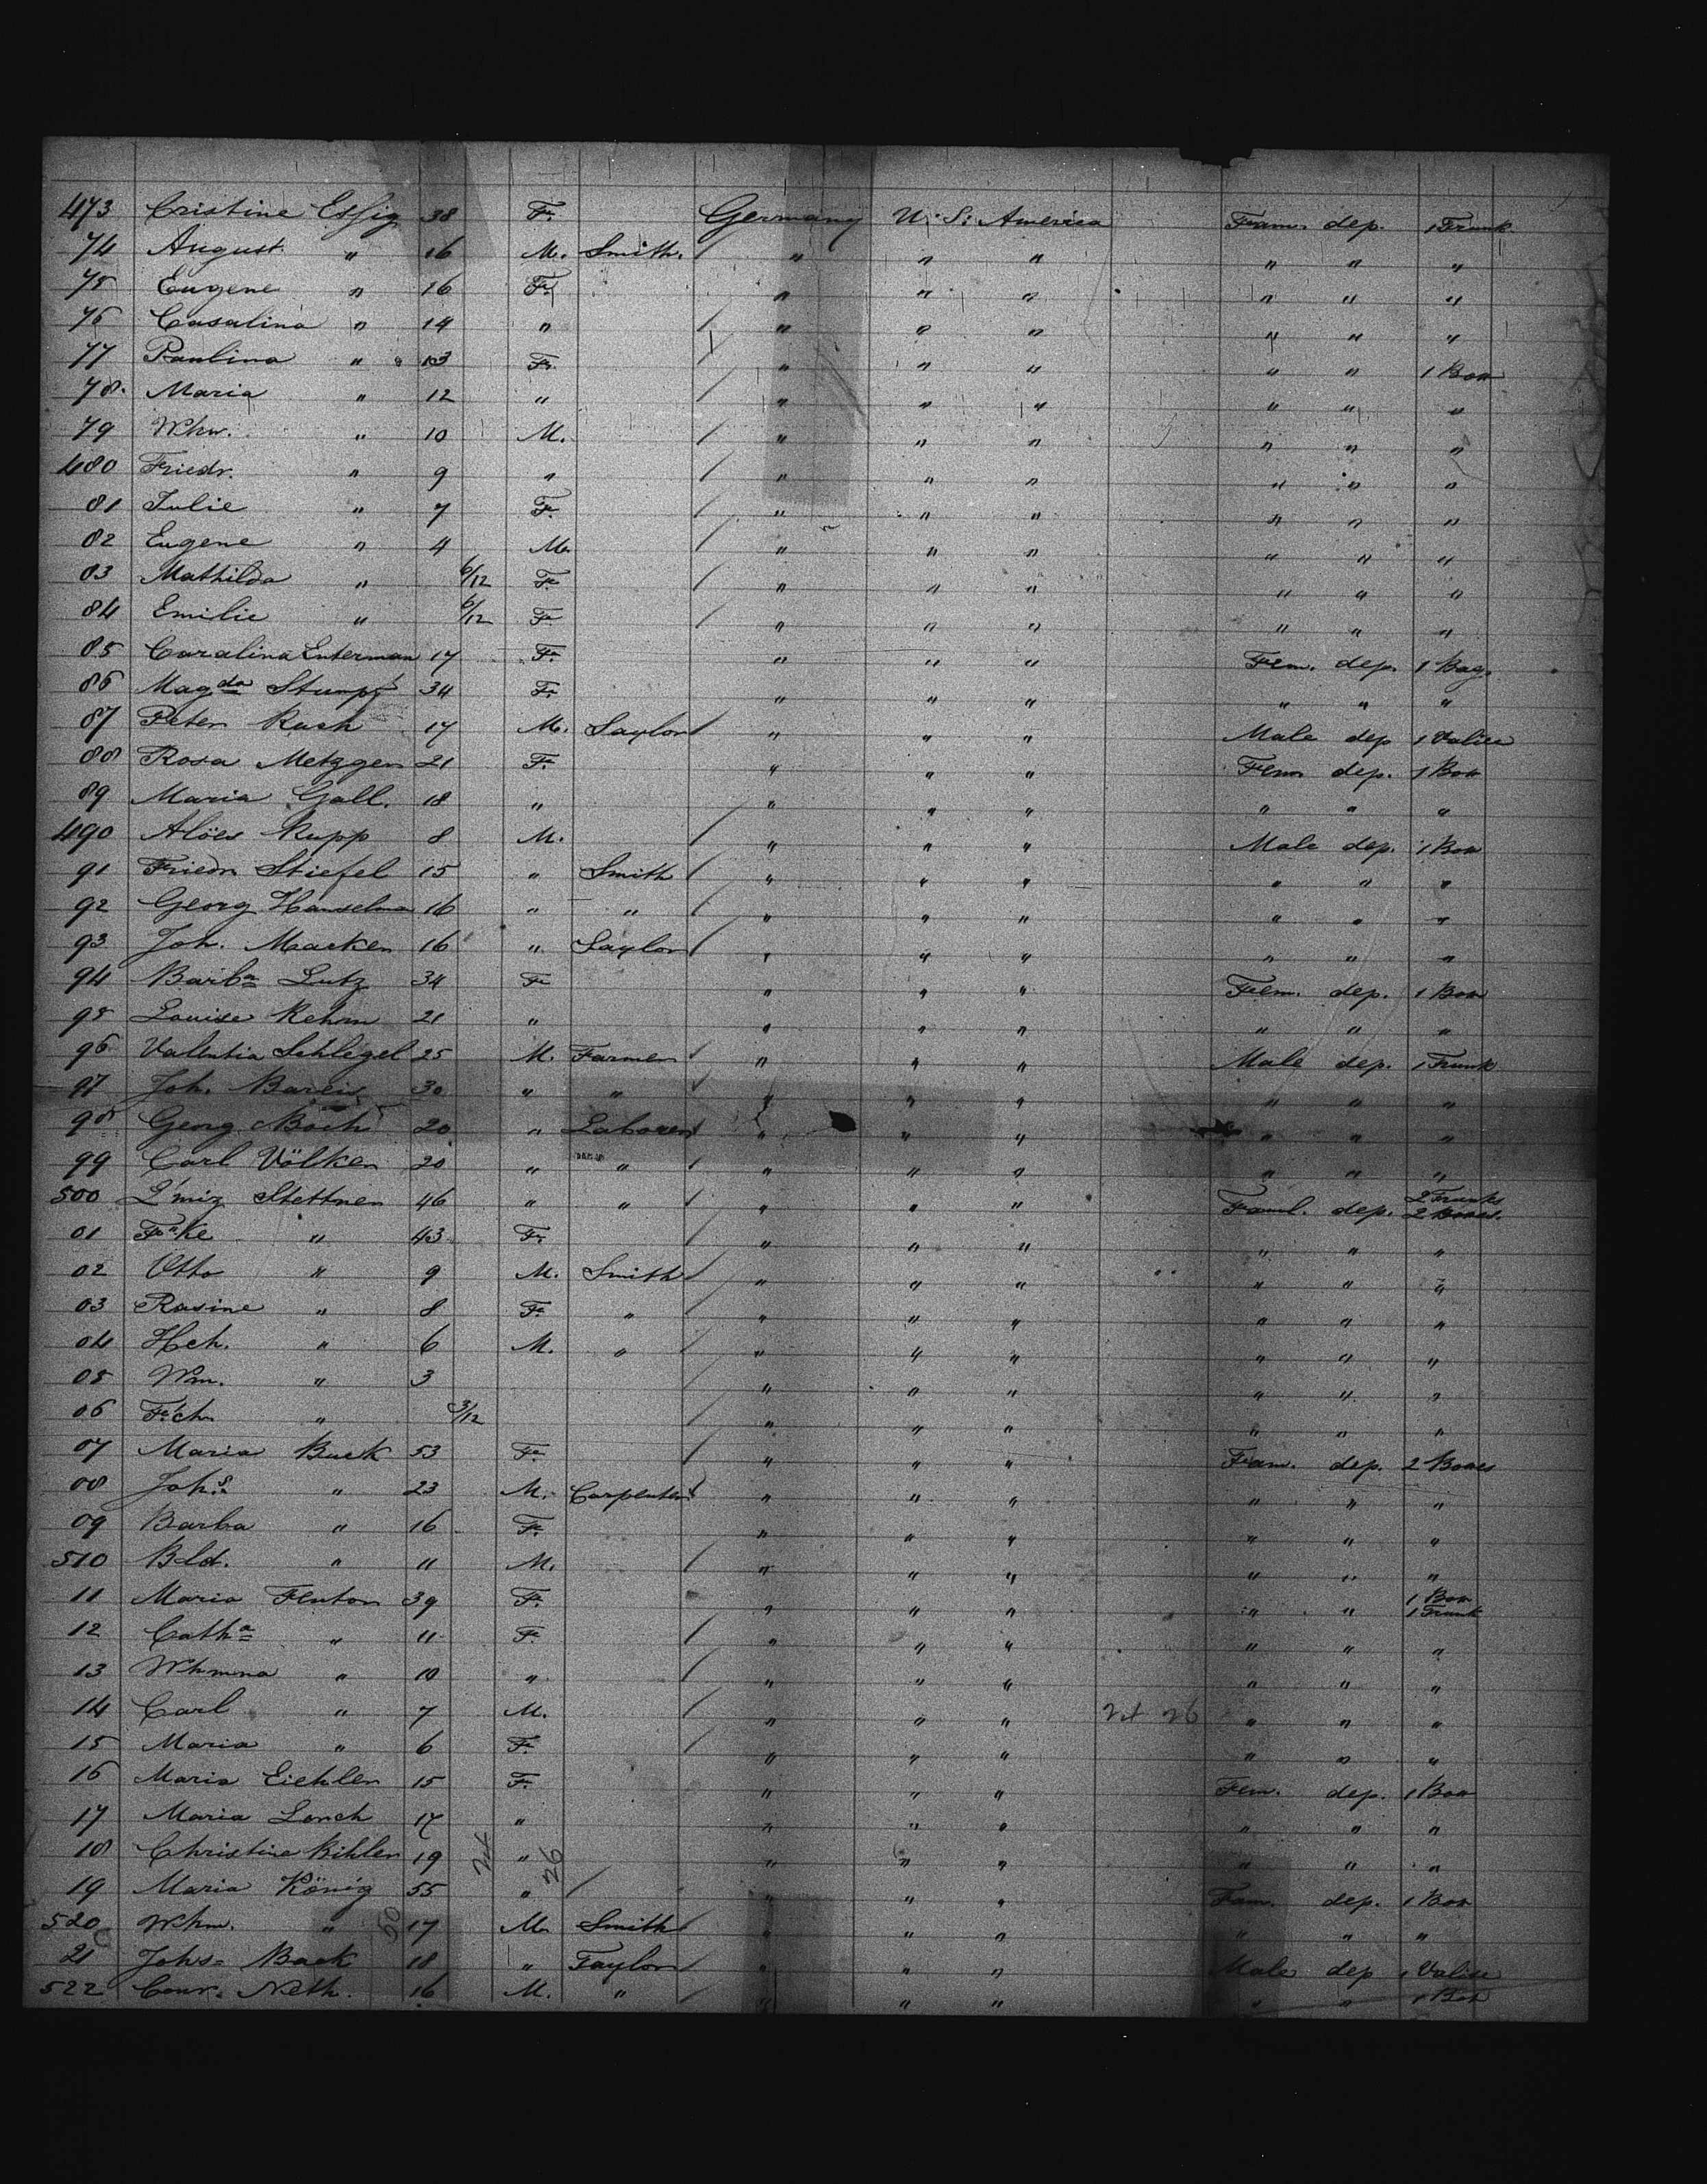 473 Cristine Essig 38 F. Germany U. S. America Fam. dep. 1 Trunk
74 August " 16 M. Smith. / " " " " " "
75 Eugene " 16 F. " " " " " "
76 Caralina " 14 " / " " " " " "
77 Paulina " 13 F. / " " " " " 1 Box
78. Maria " 12 " / " " " " " "
79 Whm. " 10 M. / " " " " " "
480 Friedr. " 9 " / " " " " " "
81 Julie " 7 F. / " " " " " "
82 Eugene " 4 M. / " " " " " "
83 Mathilda " 6/12 F. / " " " " " "
84 Emilie " 6/12 F. / " " " " " "
85 Caralina Enterman 17 F. " " " Fem. dep. 1 Bag.
86 Magda Stumpf 34 F. " " " " " "
87 Peter Rash 17 M. Taylor / " " " Male dep 1 Valise
88 Rosa Metzger 21 F. " " " Fem dep. 1 Box
89 Maria Gall. 18 " " " " " " "
490 Alöes Rupp 8 M. / " " " Male dep. 1 Box
91 Friedr Stiefel 15 " Smith / " " " " " "
92 Georg Hanselma 16 " " / " " " " " "
93 Joh. Macker 16 " Taylor / " " " " " "
94 Barba Lutz 34 F. " " " Fem. dep. 1 Box
95 Louise Rehm 21 " " " " " " "
96 Valentin Schlegel 25 M. Farmer / " " " Male dep. 1 Trunk
97 Joh. Bareis 30 " " / " " " " " "
98 Georg Böck 20 " Laborer / " " " " " "
99 Carl Völker 20 " " / " " " " " "
500 Stettner 46 " " / " " " Faml. dep. 2 Trunks 2 Boxes.
01 Fke " 43 F. / " " " " " "
02 Otto " 9 M. Smith / " " " " " "
03 Rosine " 8 F. " / " " " " " "
04 Hch. " 6 M. " / " " " " " "
05 Wm. " 3 / " " " " " "
06 Frch " 3/12 / " " " " " "
07 Maria Buck 53 F. / " " " Fam. dep. 2 Boxes
08 Johs " 23 M. Carpenter / " " " " " "
09 Barba " 16 F. " " " " " "
510 Bld. " 11 M. / " " " " " "
11 Maria Fenton 39 F. " " " " " 1 Box 1 Trunk
12 Catha " 11 F. / " " " " " "
13 Whmna " 10 " / " " " " " "
14 Carl " 7 M. / " " " 26 " " "
15 Maria " 6 F. / " " " " " "
16 Maria Eichler 15 F. " " " Fem. dep. 1 Box
17 Maria Lorch 17 " " " " " " "
18 Christine Kihler 19 26 " " " " " " "
19 Maria König 55 " / " " " Fam. dep. 1 Box
520 Whm. " 50 17 M. Smith / " " " " " "
21 Johs Back 18 " Taylor / " " " Male dep 1 Valise
522 Conr. Neth. 16 M. " / " " " " " 1 Box